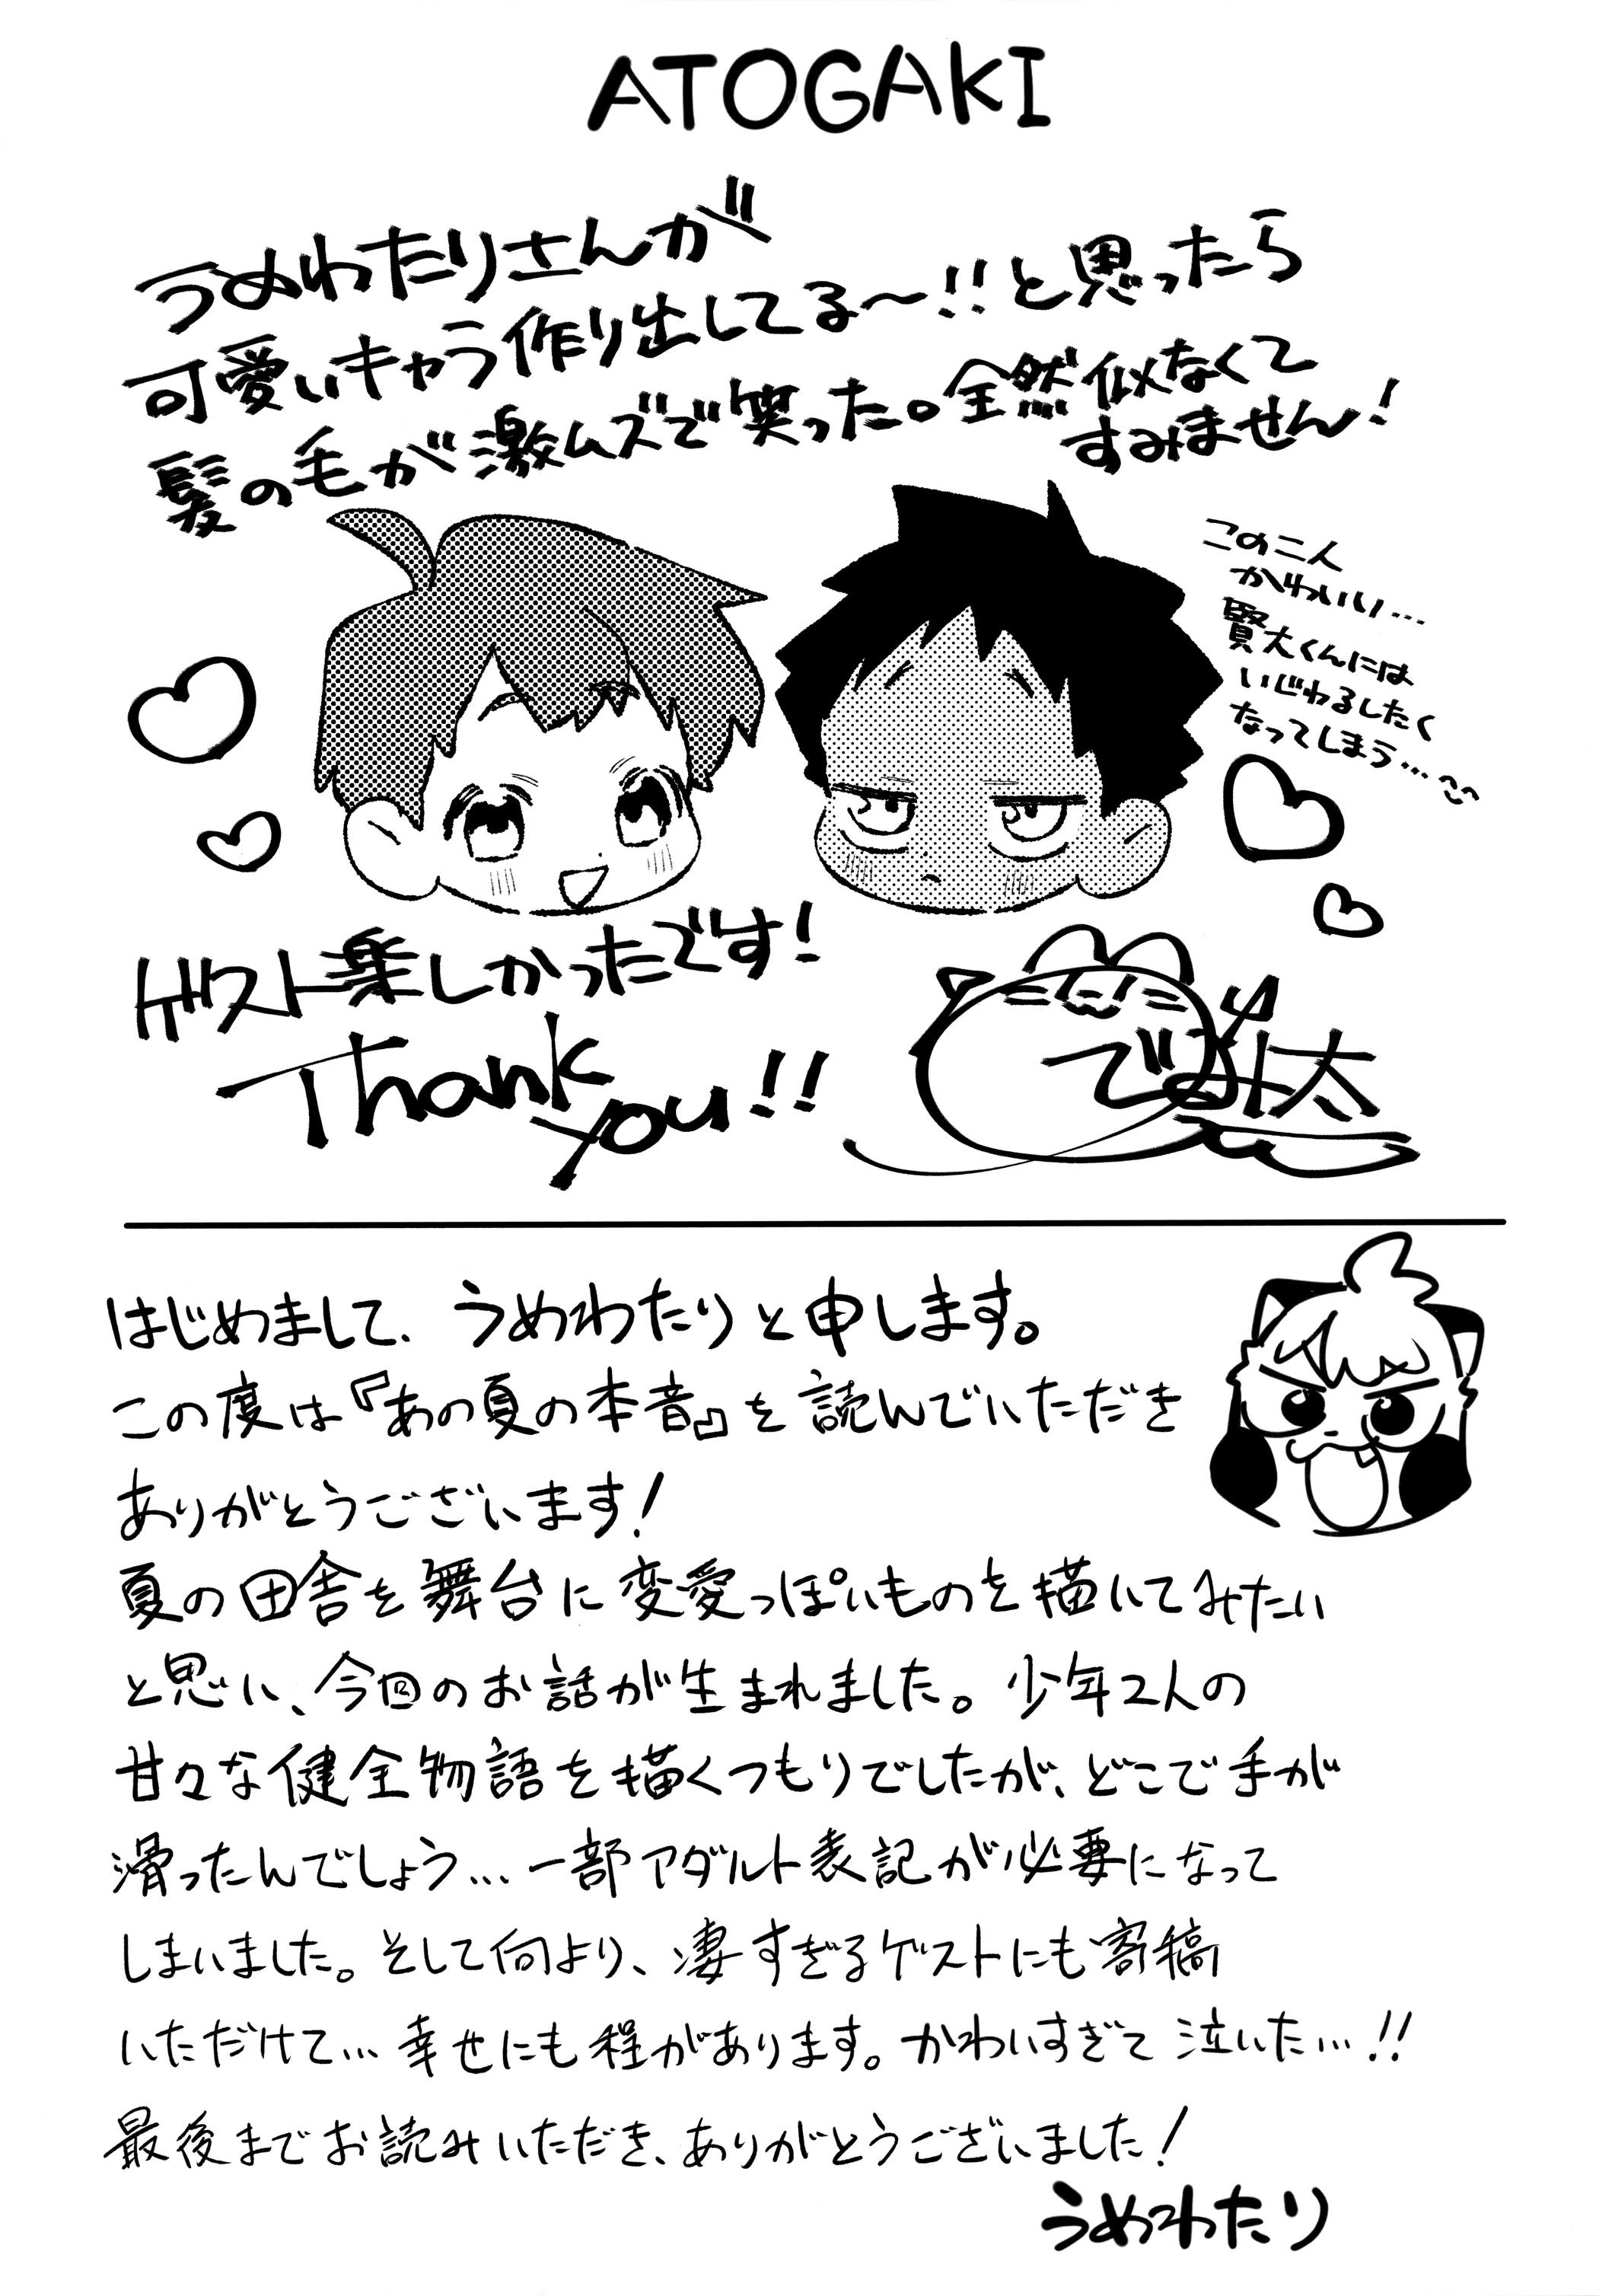 ATOGAKI
うめわたりさんが
可愛いキャラ作り出してる〜!!と思ったら
髪の毛が激ムズで笑った。全然似なくて
すみません!
この二人
かわいい…
賢太くんには
いじわるしたく
なってしまう…
ゲスト楽しかったです!
Thank
you!!
でみ太
はじめまして、うめわたりと申します。
この度は『あの夏の本音』を読んでいただき
ありがとうございます!
夏の田舎を舞台に変愛っぽいものを描いてみたい
と思い、今回のお話が生まれました。少年2人の
甘々な健全物語を描くつもりでしたが、どこで手が
滑ったんでしょう…一部アダルト表記が必要になって
しまいました。そして何より、凄すぎるゲストにも寄稿
いただけて…幸せにも程があります。かわいすぎて泣いた…!!
最後までお読みいただき、ありがとうございました!
うめわたり